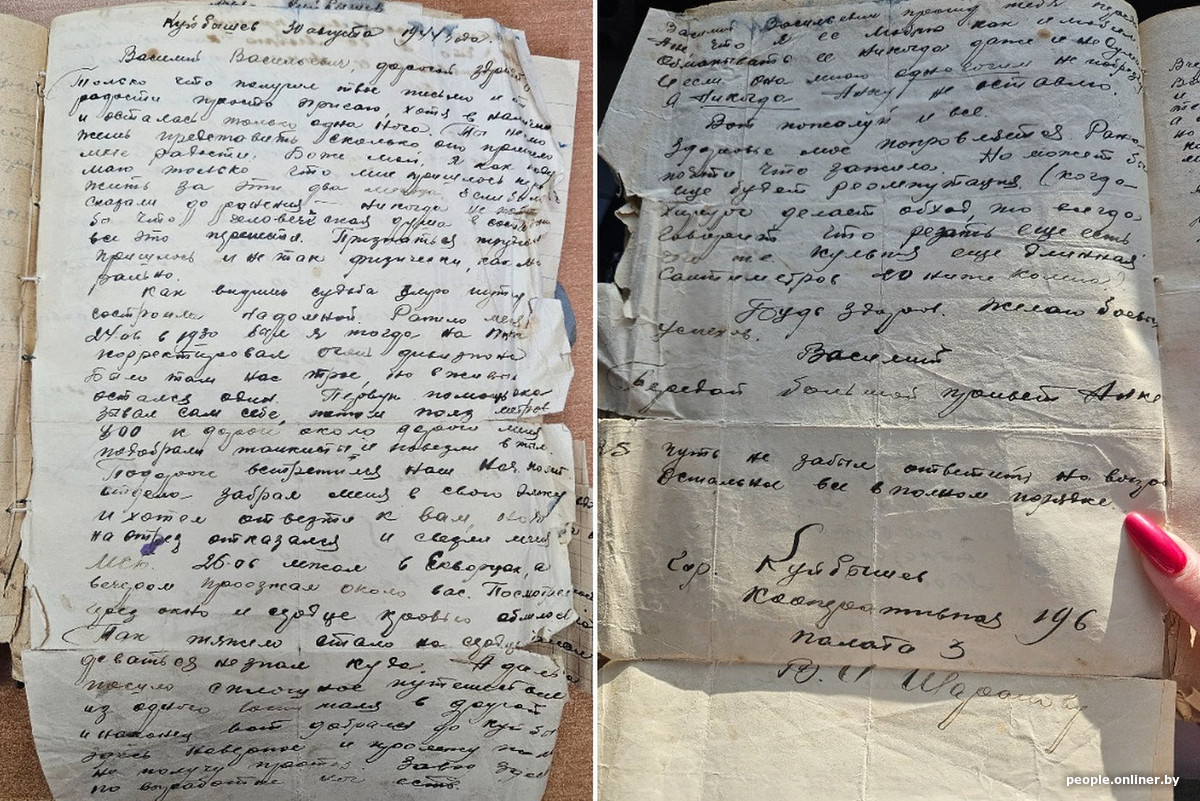 Куйбышев 30 августа 1944 года.
Василий Васильевич, дорогой здравст
Только что получил твое письмо и от
радости просто прыгаю, хотя в наличии
и осталась только одна нога. Ты не мо
жешь представить сколько оно принесло
мне радости. Боже мой, я как поду
маю только что мне пришлось пере
жить за эти два месяца. Если бы мне
сказали до ранения никогда не
бы что человеческая душа в состоя
все это перенести. Признаться трудно
пришлось и не так физически, как мо
рально.
Как видишь судьба злую шутку
состроила надо мной. Ранило меня
24.06 в 1930 я тогда на
корректировал огонь дивизиона
Было там нас трое, но в живых
остался один. Первую помощь ока
зывал сам себе, потом полз метров
800 к дороге, около дороги меня
подобрали танкисты и повезли в тыл
По дороге встретился наш нач.
забрал меня в свою
и хотел отвезти к вам, но я
наотрез отказался и свезли меня в
МСб. 26.06 лежал в а
вечером проезжал около вас. Посмотрел
через окно и сердце кровью облилось
Так тяжело стало на сердце
деваться не знал куда. А дальше
сплошное путешествие
из одного госпиталя в другой
и наконец вот добрался до Куйбы
здесь наверное и пролежу пока
не получу протез. Завод здесь
по выработке ног есть.
Василий Васильевич прошу тебя
Ане что я ее люблю как и
Обманывать ее никогда даже и не думал
и если она мною одноногим не
а никогда Анку не оставлю.
Вот пожалуй и все.
Здоровье мое поправляется Рана
почти что зажила. Но может быть
еще будет реампутация (когда
хирург делает обход, то всегда
говорит что резать еще есть
культя еще длинная
сантиметров 20 ниже колена)
Будь здоров. Желаю боевых
успехов.
Василий
Передай большой привет Анке
PS Чуть не забыл ответить на вопрос
Остальное все в полном порядке
Гор Куйбышев
Кооперативная 196
палата 3
people.onliner.by